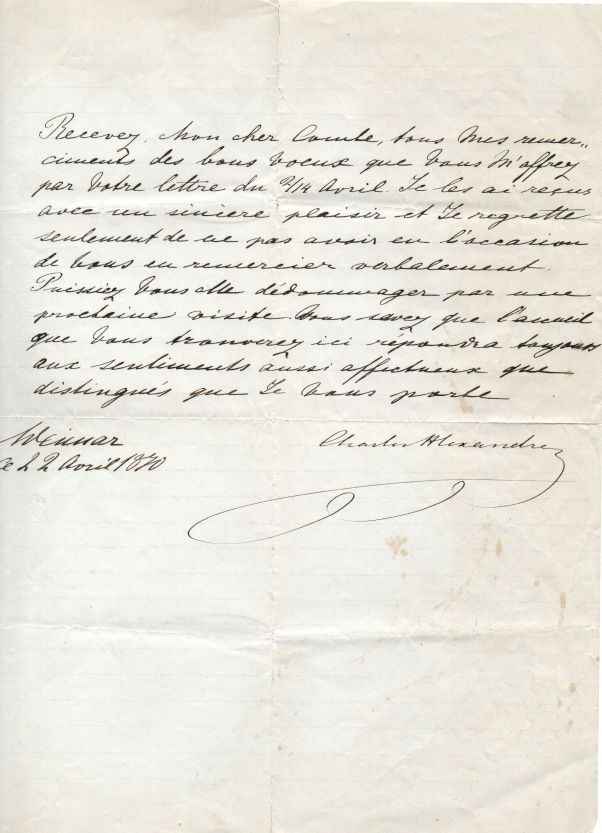 Recevez, Mon cher Comte, tous Mes remer„
ciments des bons voeux que Vous M'offrez
par Votre lettre du 2/14 Avril. Je les ai reçus
avec un sincère plaisir et Je regrette
seulement de ne pas avoir eu l'occasion
de Vous en remercier verbalement.
Puissiez Vous Me dédommager par une
prochaine visite. Vous savez que l'accueil
que Vous trouverez ici répondra toujours
aux sentiments aussi affectueux que
distingués que Je Vous porte
Weimar
ce 22 Avril 1870
Charles Alexandre